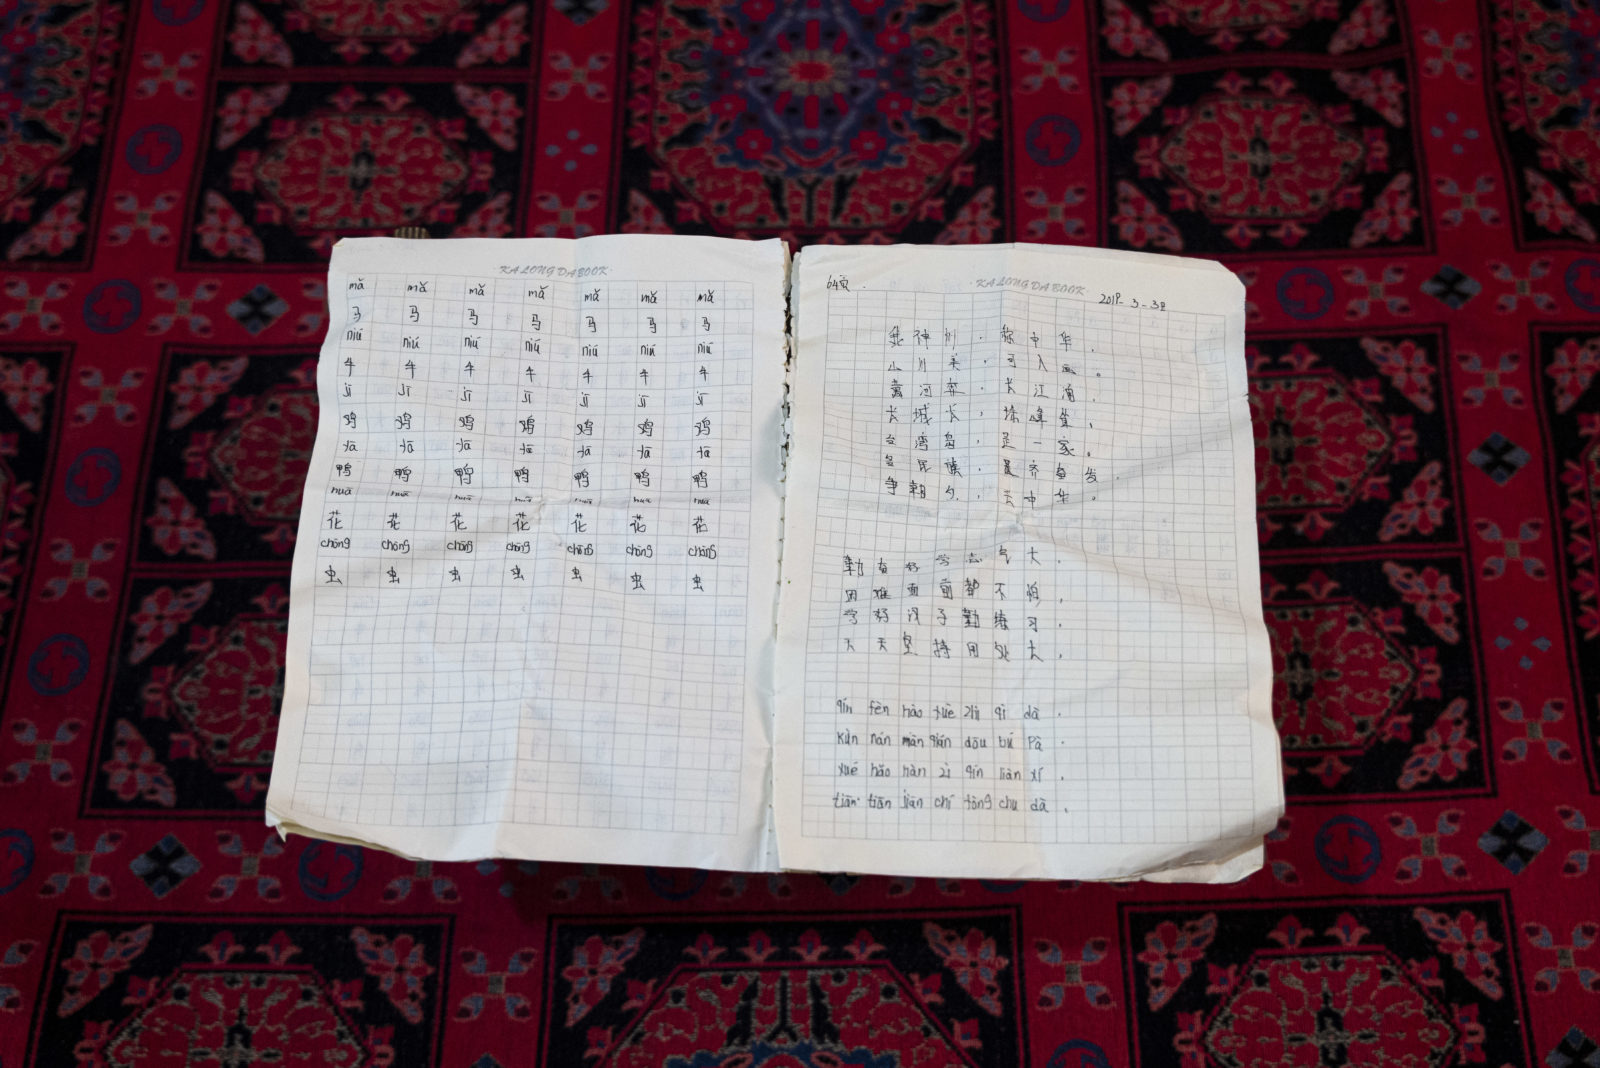 KALONGDABOOK
mǎ mǎ mǎ mǎ mǎ mǎ mǎ
马 马 马 马 马 马 马
niú niú niú niú niú niú niú
牛 牛 牛 牛 牛 牛 牛
jī jī jī jī jī jī jī
鸡 鸡 鸡 鸡 鸡 鸡 鸡
yā yā yā yā yā yā yā
鸭 鸭 鸭 鸭 鸭 鸭 鸭
huā huā huā huā huā huā huā
花 花 花 花 花 花 花
chóng chóng chóng chóng chóng chóng chóng
虫 虫 虫 虫 虫 虫 虫
KALONGDABOOK
64页.
神州,称中华.
山川美,可入画。
黄河奔,长江涌.
长城长,珠峰
台湾岛,是一家。
各民族,奋发.
争朝夕,中华。
勤奋好学志气大.
困难面前都不怕,
学好汉子勤练习.
天天坚持用处大.
qín fèn hào xué zhì qì dà .
kùn nán miàn qián dōu bú pà .
xué hǎo hàn zì qín liàn xí .
tiān tiān jiān chí yòng chu dà .